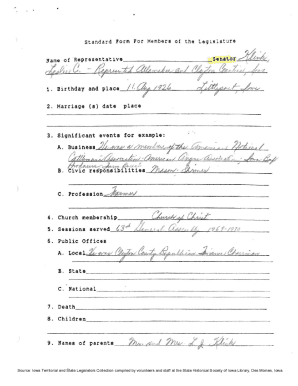 Standard Form For Members of the Legislature
Name of Representative Senator Klink
Leslie C. - Represented Allamakee and Clayton Counties, Iowa
1. Birthday and place 11 Aug 1926 Littleport Iowa
2. Marriage (s) date place
3. Significant events for example:
A. Business He was a member of the American National
Cattlemen's Association - American Angus Association - Iowa Beef
B. Civic responsibilities Mason Shriner
C. Profession Farmer
4. Church membership Church of Christ
5. Sessions served 63rd General Assembly 1969-1970
6. Public Offices
A. Local He was Clayton County Republican Finance Chairman
B. State
C. National
7. Death
8. Children
9. Names of parents Mr. and Mrs. L. J. Klink
Source: Iowa Territorial and State Legislators Collection compiled by volunteers and staff at the State Historical Society of Iowa Library, Des Moines, Iowa.